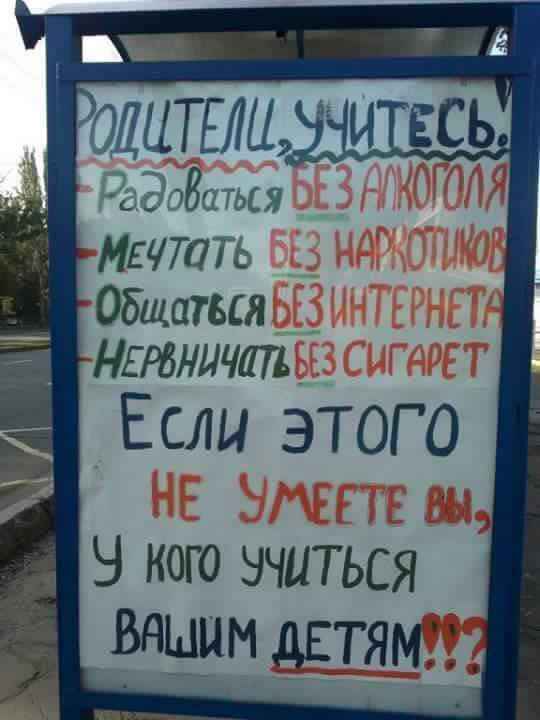 РОДИТЕЛИ, УЧИТЕСЬ!
- РаДоваться БЕЗ АЛКОГОЛЯ
- МЕЧТАТЬ БЕЗ НАРКОТИКОВ
- Общаться БЕЗ ИНТЕРНЕТА
- НЕРВНИЧАТЬ БЕЗ СИГАРЕТ
ЕСЛИ ЭТОГО
НЕ УМЕЕТЕ ВЫ,
У КОГО УЧИТЬСЯ
ВАШИМ ДЕТЯМ!!?